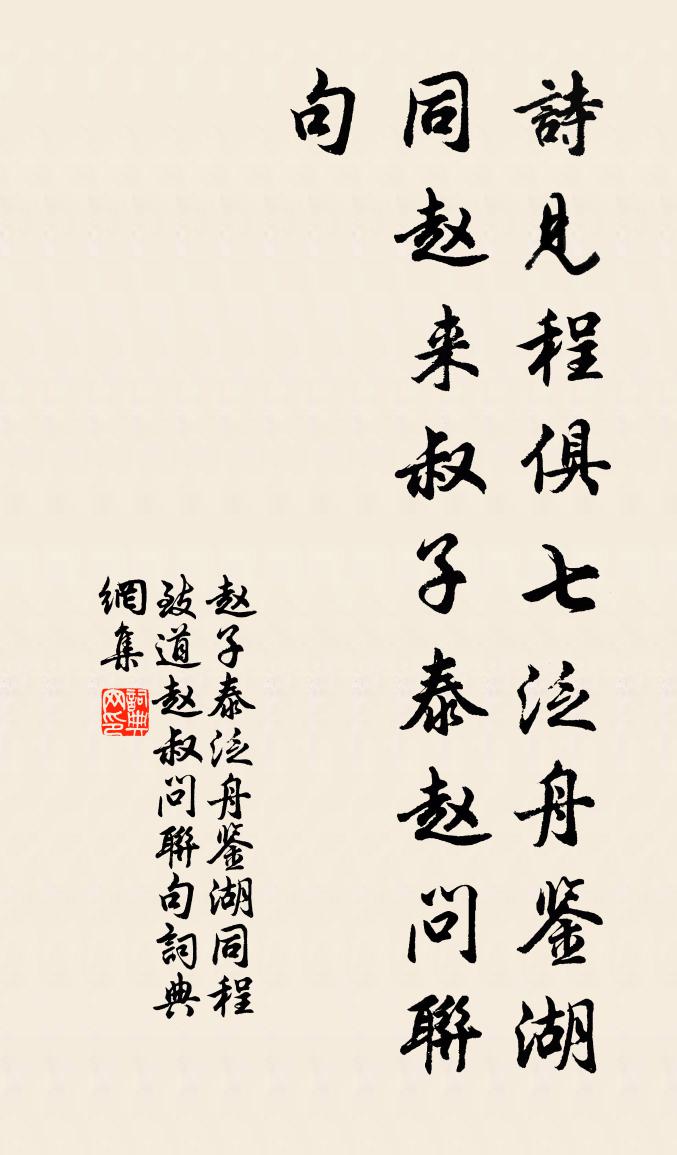 詩見程俱七泛舟鉴湖
同赵来叔子泰赵问聯
句
赵子泰泛舟鉴湖同程
致道赵叔问聯句詞典
網集
詞典网印